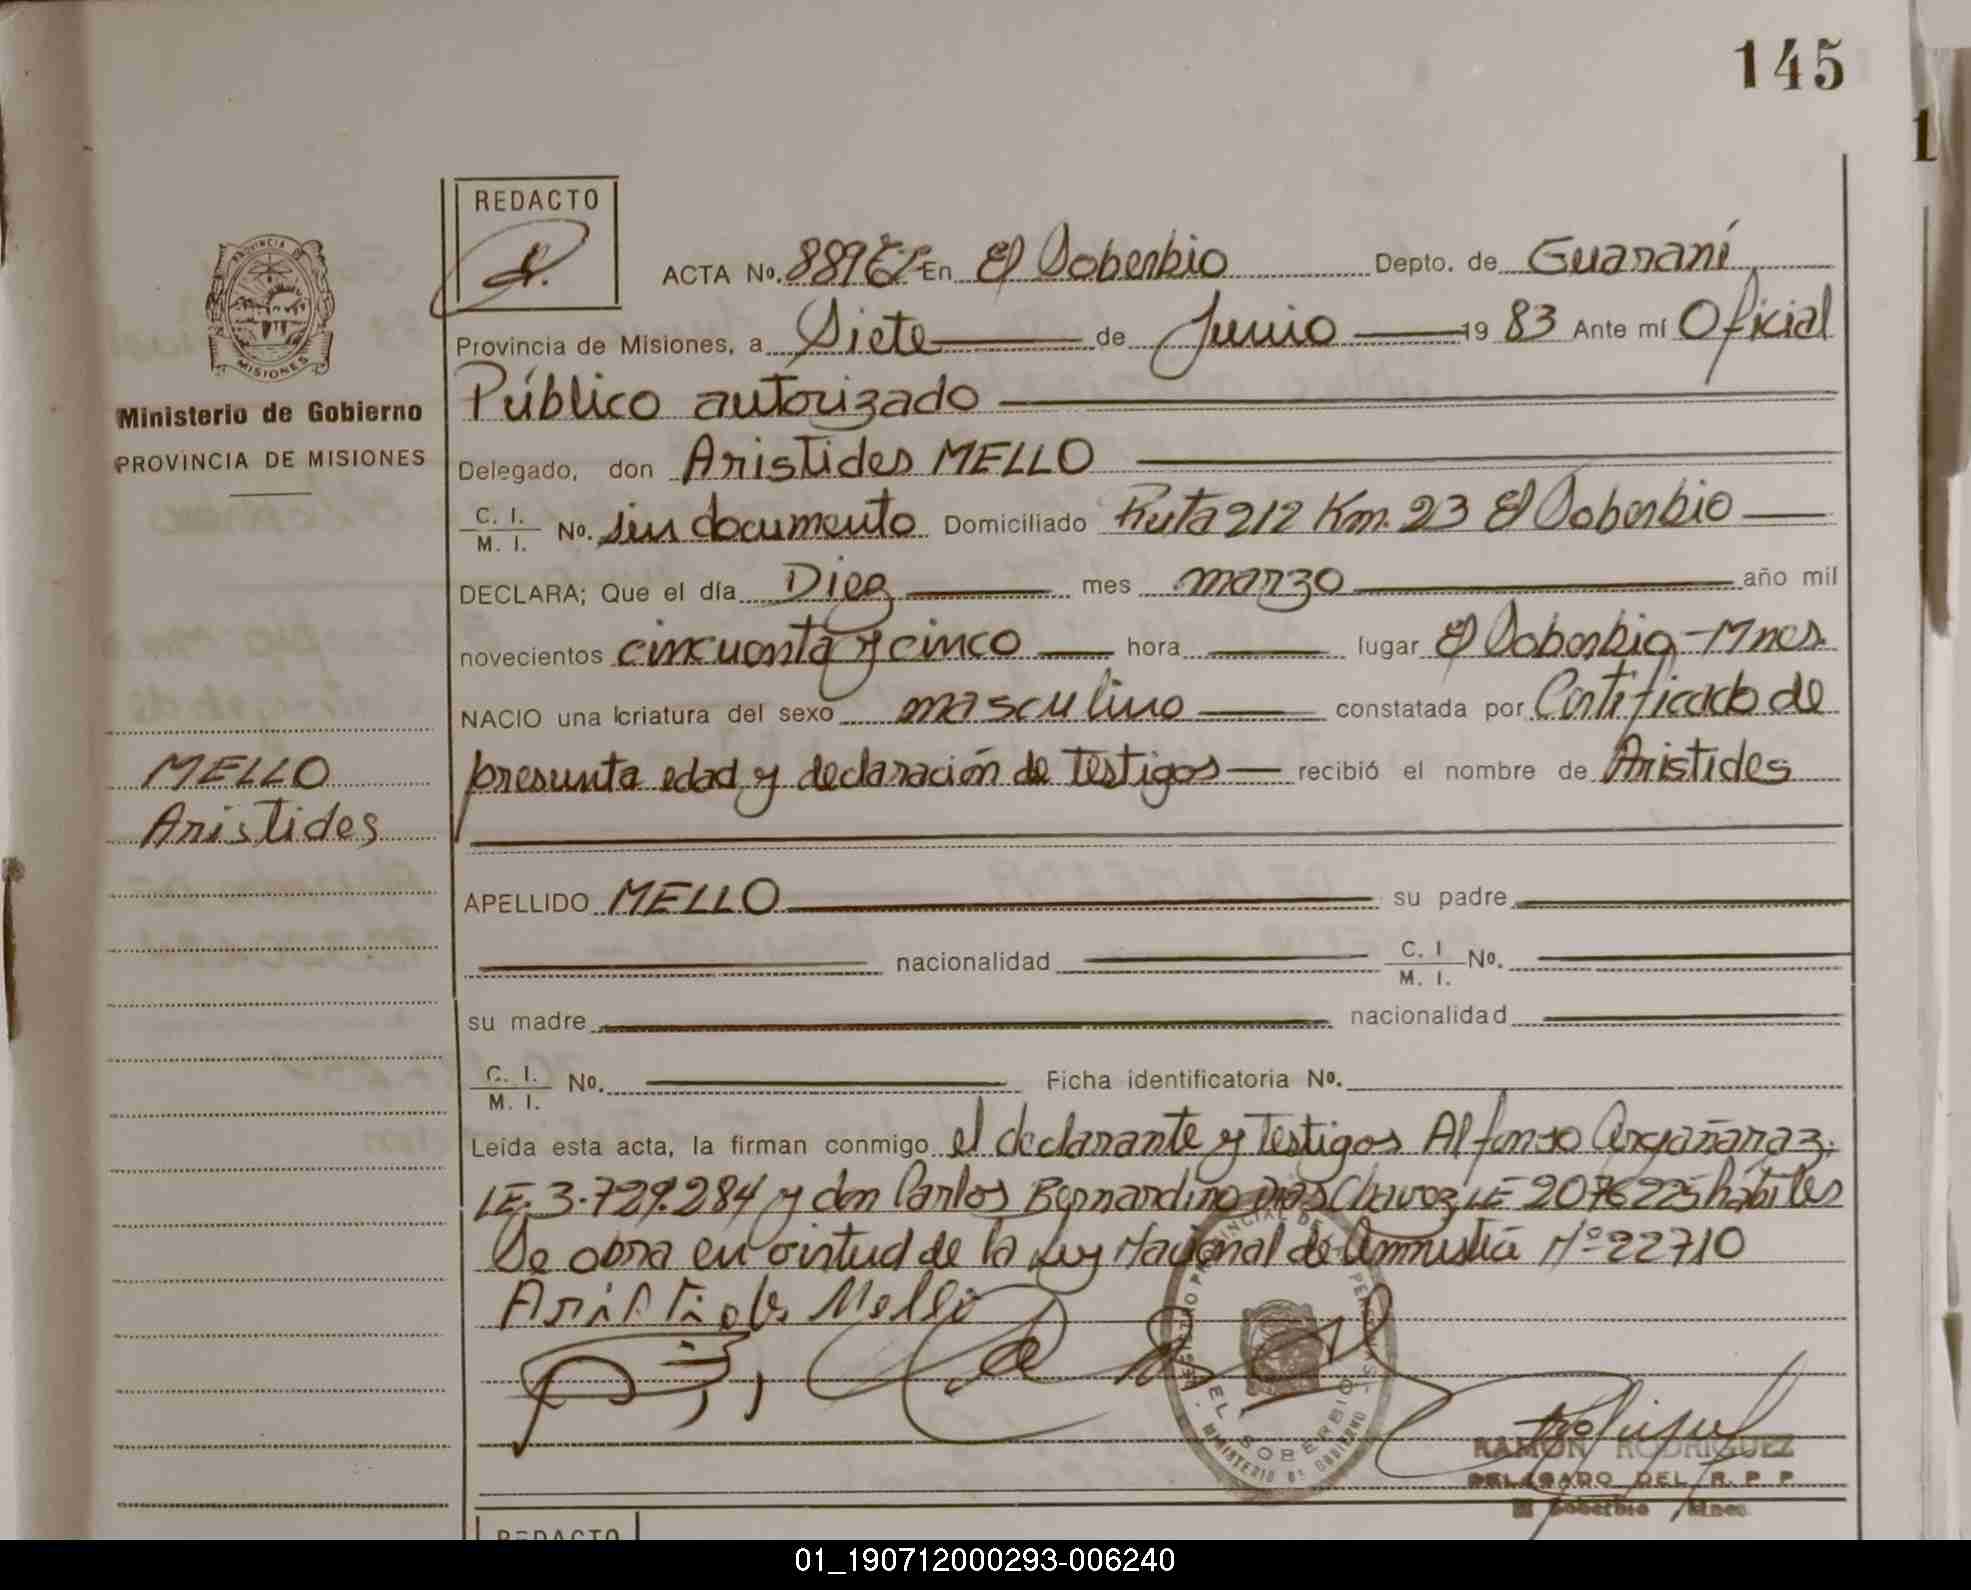 145
1
REDACTO
PROVINCIA DE
MISIONES
Ministerio de Gobierno
PROVINCIA DE MISIONES
MELLO
Aristides
ACTA No. En El Soberbio Depto. de Guaraní
Provincia de Misiones, a Siete de Junio 19 83 Ante mí Oficial
Público autorizado
Delegado, don Aristides MELLO
C. I. / M. I. No. sin documento Domiciliado Ruta 212 Km. 23 El Soberbio
DECLARA; Que el día Diez mes marzo año mil
novecientos cincuenta y cinco hora lugar El Soberbio - Mnes
NACIO una criatura del sexo masculino constatada por Certificado de
presunta edad y declaración de testigos recibió el nombre de Aristides
APELLIDO MELLO su padre
nacionalidad C. I / M. I. No.
su madre nacionalidad
C. I. / M. I. No. Ficha identificatoria No.
Leída esta acta, la firman conmigo el declarante y testigos Alfonso Argañaraz
LE. 3.729.284 y don Carlos Bernardino Chavez LE 2076225 hábiles
Se obra en virtud de la Ley Nacional de Amnistía Nº 22710
Aristides Mello
EL SOBERBIO
MINISTERIO DE GOBIERNO
RAMON RODRIGUEZ
DELEGADO DEL R. P. P.
El Soberbio Mnes
REDACTO
01_190712000293-006240